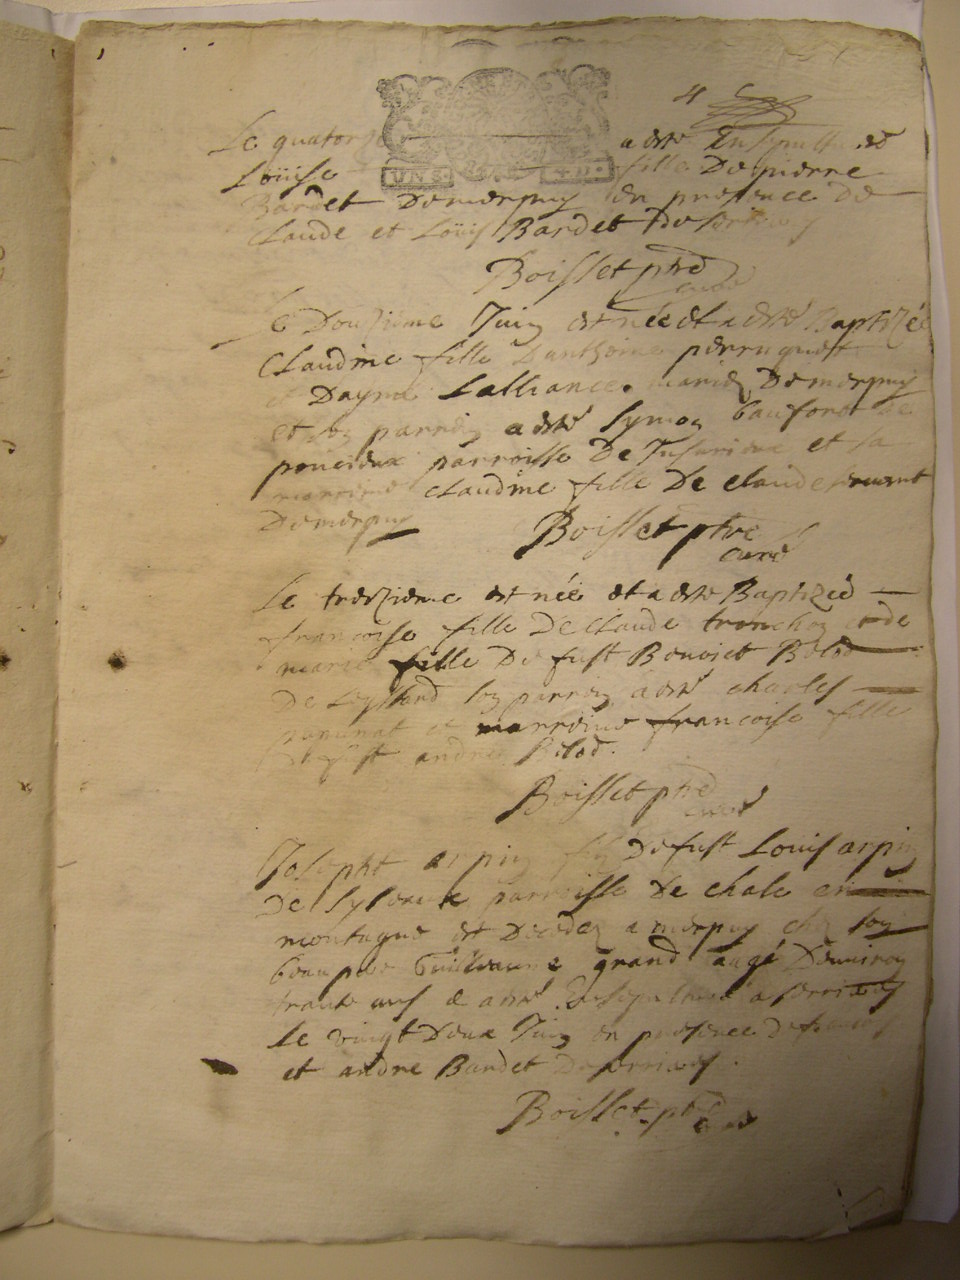 4
Le quatorz a esté Ensepulturé
Loüise fille De pierre
Bardet Demerpuy en presence de
Claude et Loüis Bardet De serrieres
UNS. 4D.
Boisset ptre curé
Le Douzieme Juin est née et a esté Baptizée
Claudine fille Danthoine perruquet
et Dayme Lalliance mariez Demerpuy
et son parrein a esté Symon
poncieux parroisse De Jusurieux et sa
marreine Claudine fille De claude servant
Demerpuy
Boisset ptre
curé
Le treizieme est née et a esté Baptizéé
francoise fille De Claude tronchon et de
marie fille De fust Bouvier
De Leyssard son parrein a esté charles
et marreine francoise fille
De fust andre Belod.
Boisset ptre
curé
Joseph arpin fils De fust Louis arpin
De parroisse De chale en
montagne est Decedez a merpuy chez son
beau pere Guillaume grand aagé Denviron
trante ans & a esté Ensepulturé a serrieres
le vingt Deux Juin en presence De francois
et andre Bardet De serrieres.
Boisset ptre curé